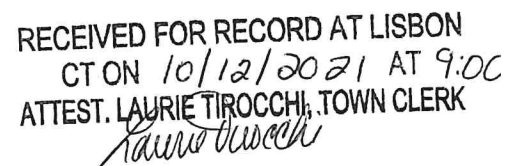 RECEIVED FOR RECORD AT LISBON
CT ON 10/12/2021 AT 9:00
ATTEST. LAURIE TIROCCHI, TOWN CLERK
Laurie Tirocchi